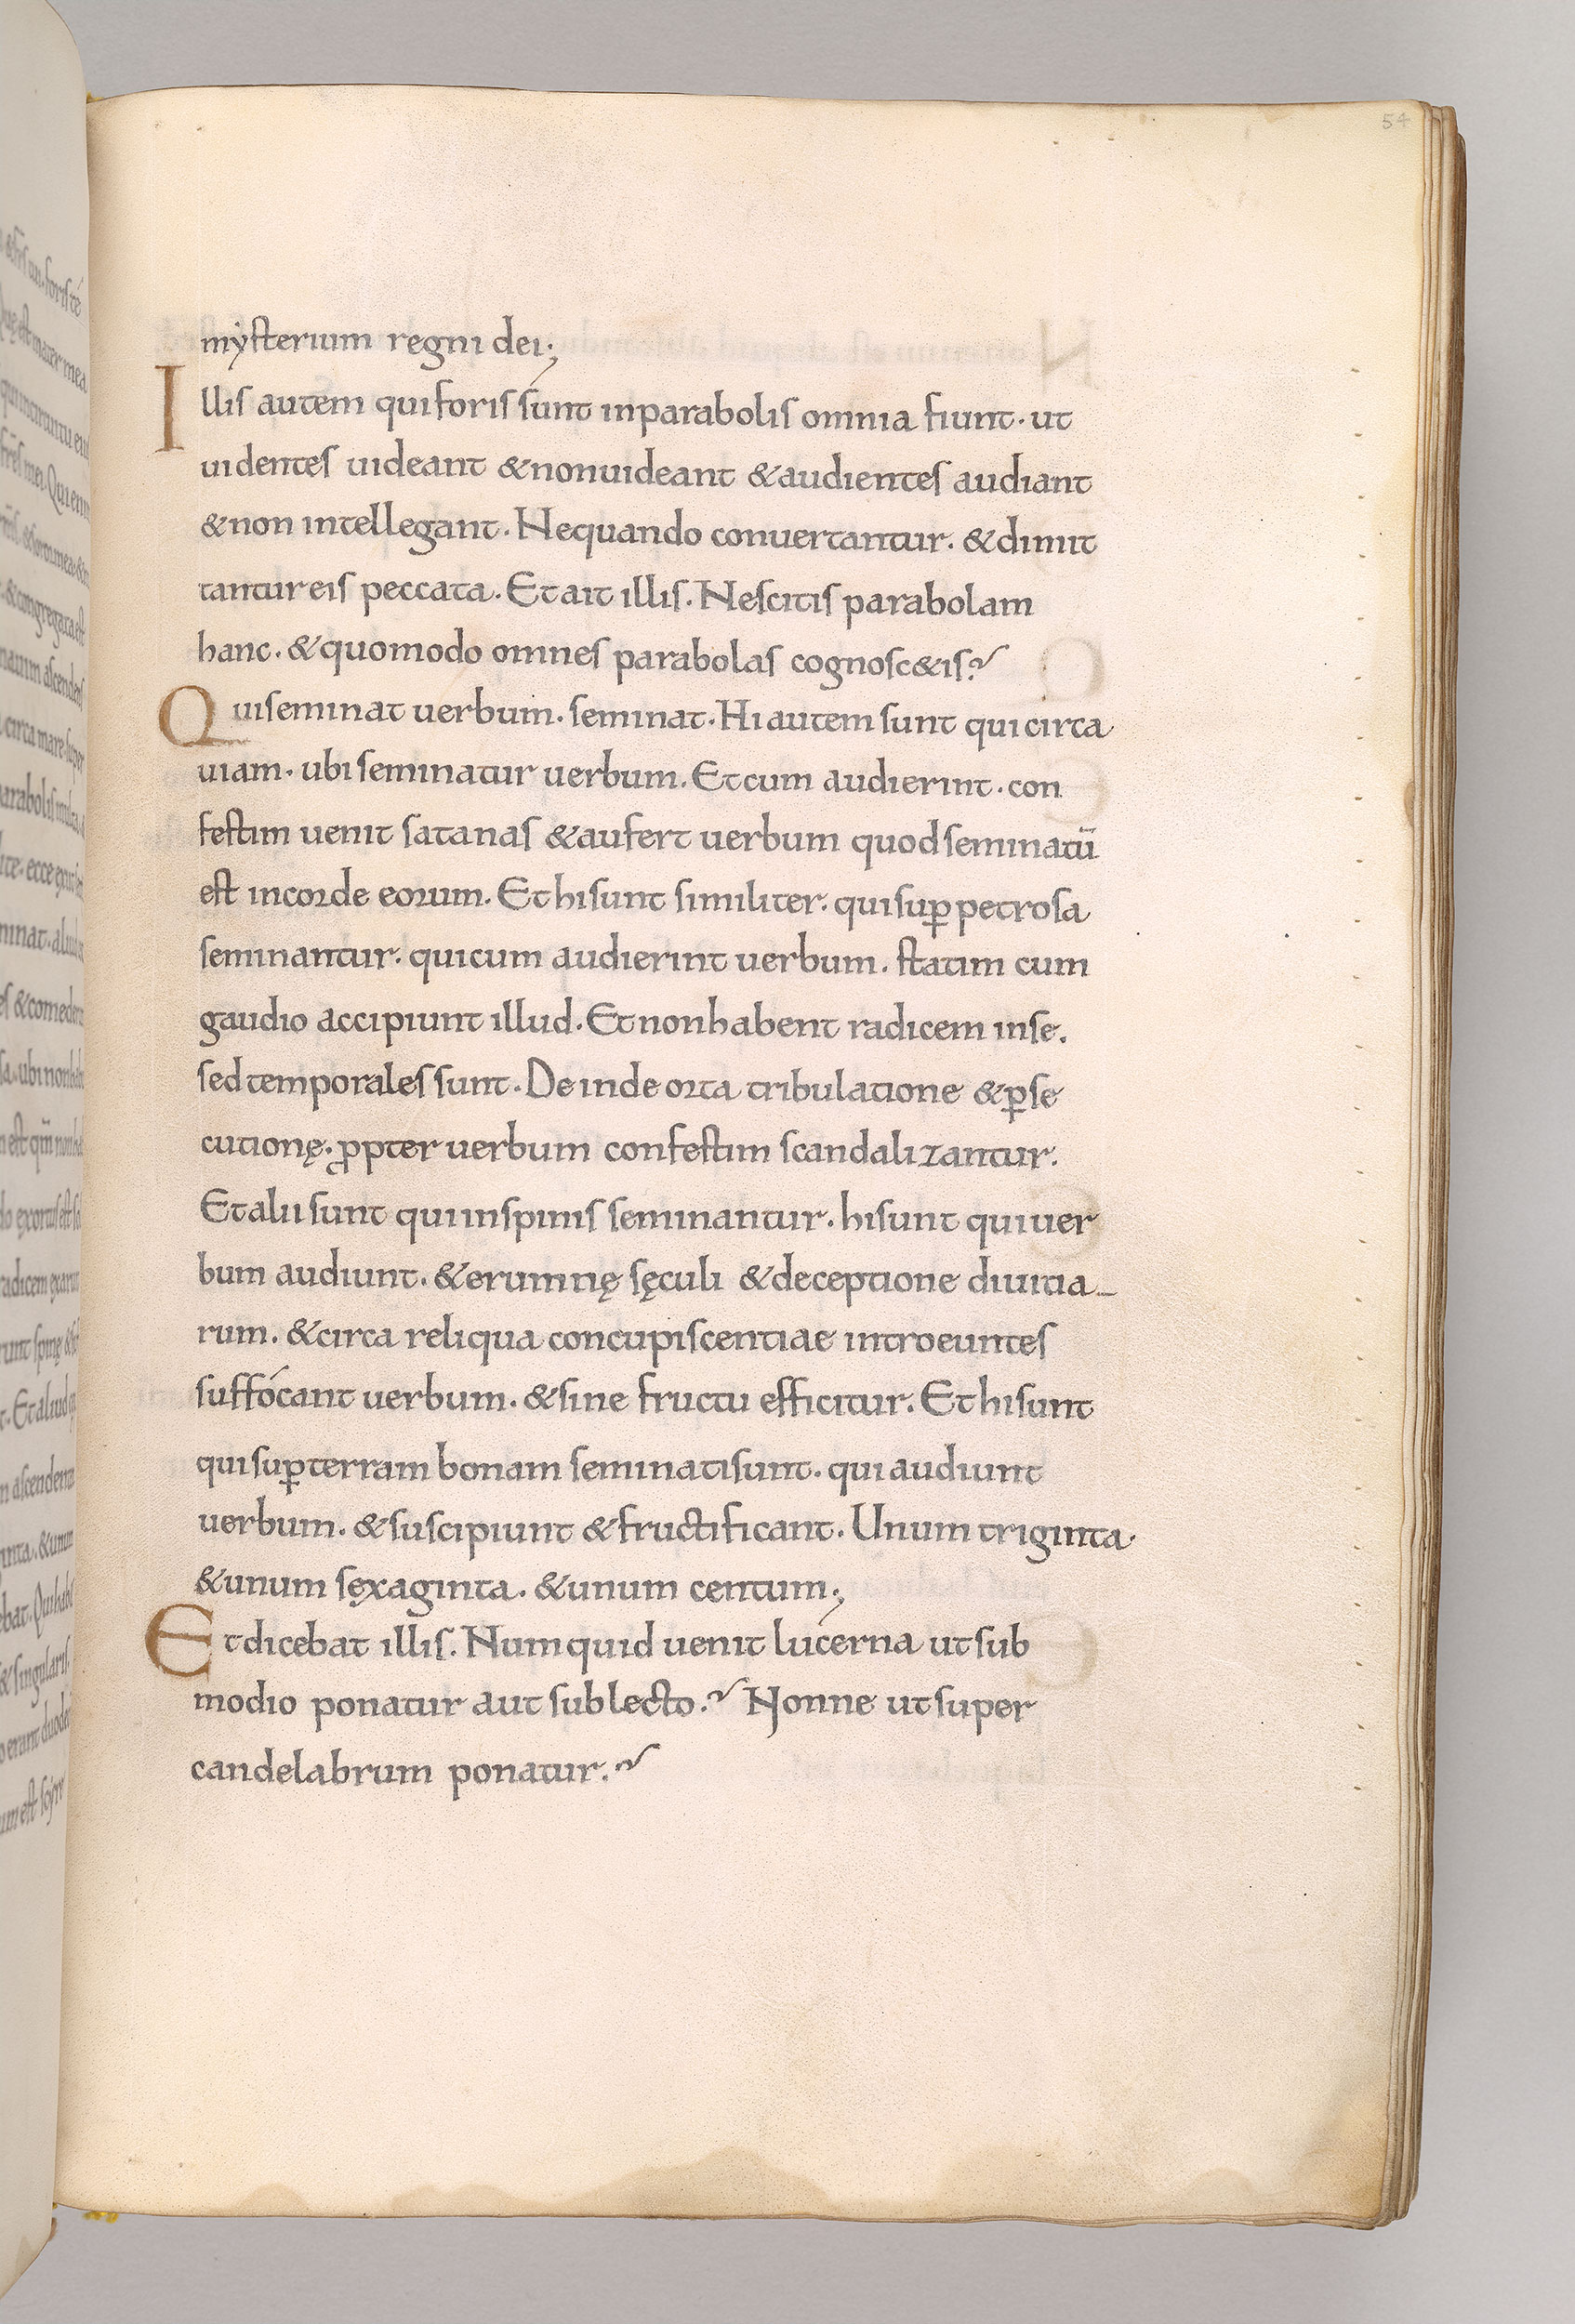 54
mẏsterium regni dei;
Illis autem qui foris sunt inparabolis omnia fiunt. ut
uidentes uideant &nonuideant &audientes audiant
&non intellegant. Nequando conuertantur. &dimit
tantur eis peccata. Et ait illis. Nescitis parabolam
hanc. &quomodo omnes parabolas cognosc&is?
Qui seminat uerbum. seminat. Hi autem sunt qui circa
uiam. ubi seminatur uerbum. Et cum audierint. con
festim uenit satanas &aufert uerbum quod seminatū
est incorde eorum. Et hi sunt similiter. qui sup̄ petrosa
seminantur. qui cum audierint uerbum. statim cum
gaudio accipiunt illud. Et non habent radicem inse.
sed temporales sunt. De inde orta tribulatione &ꝑse
cutionę. ꝓpter uerbum confestim scandalizantur.
Et alii sunt qui inspinis seminantur. hi sunt qui uer
bum audiunt. &erumnę sęculi &deceptione diuitia_
rum. &circa reliqua concupiscentiae introeuntes
suffócant uerbum. &sine fructu efficitur. Et hi sunt
qui suꝑ terram bonam seminati sunt. qui audiunt
uerbum. &suscipiunt &fructificant. Unum triginta.
&unum sęxaginta. &unum centum;
Et dicebat illis. Numquid uenit lucerna ut sub
modio ponatur aut sub lecto? Nonne ut super
candelabrum ponatur?